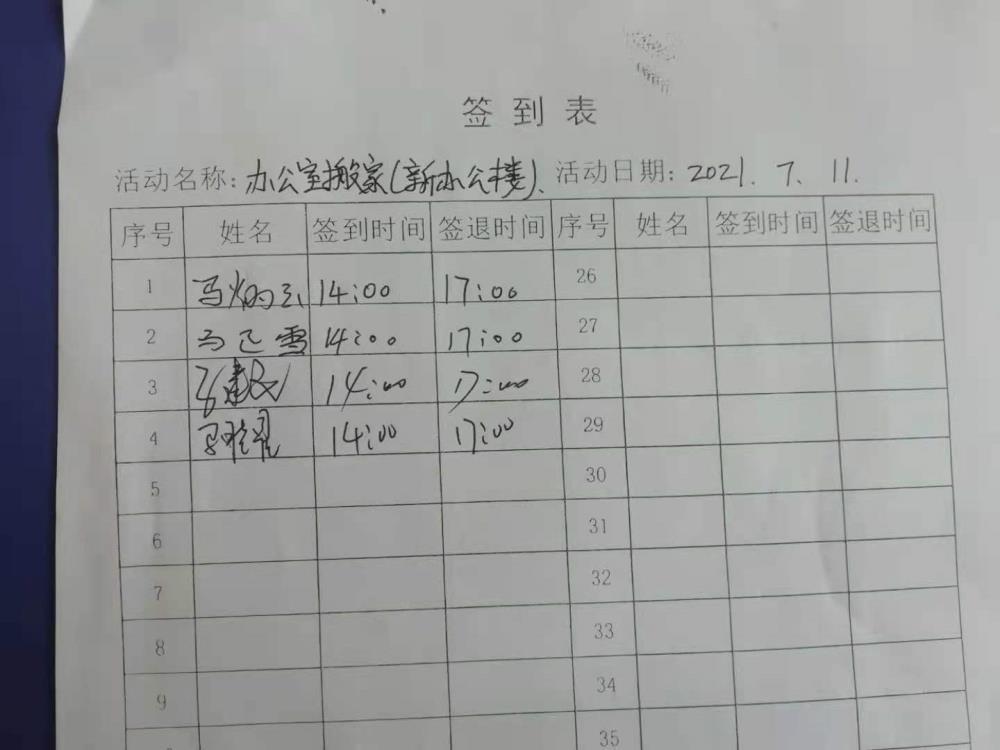 签到表
活动名称:办公室搬家(新办公楼)、活动日期:2021.7.11.
序号 姓名 签到时间 签退时间 序号 姓名 签到时间 签退时间
1 14:00 17:00 26
2 马 雪 14:00 17:00 27
3 14:00 17:00 28
4 14:00 17:00 29
5 30
6 31
7 32
8 33
9 34
35